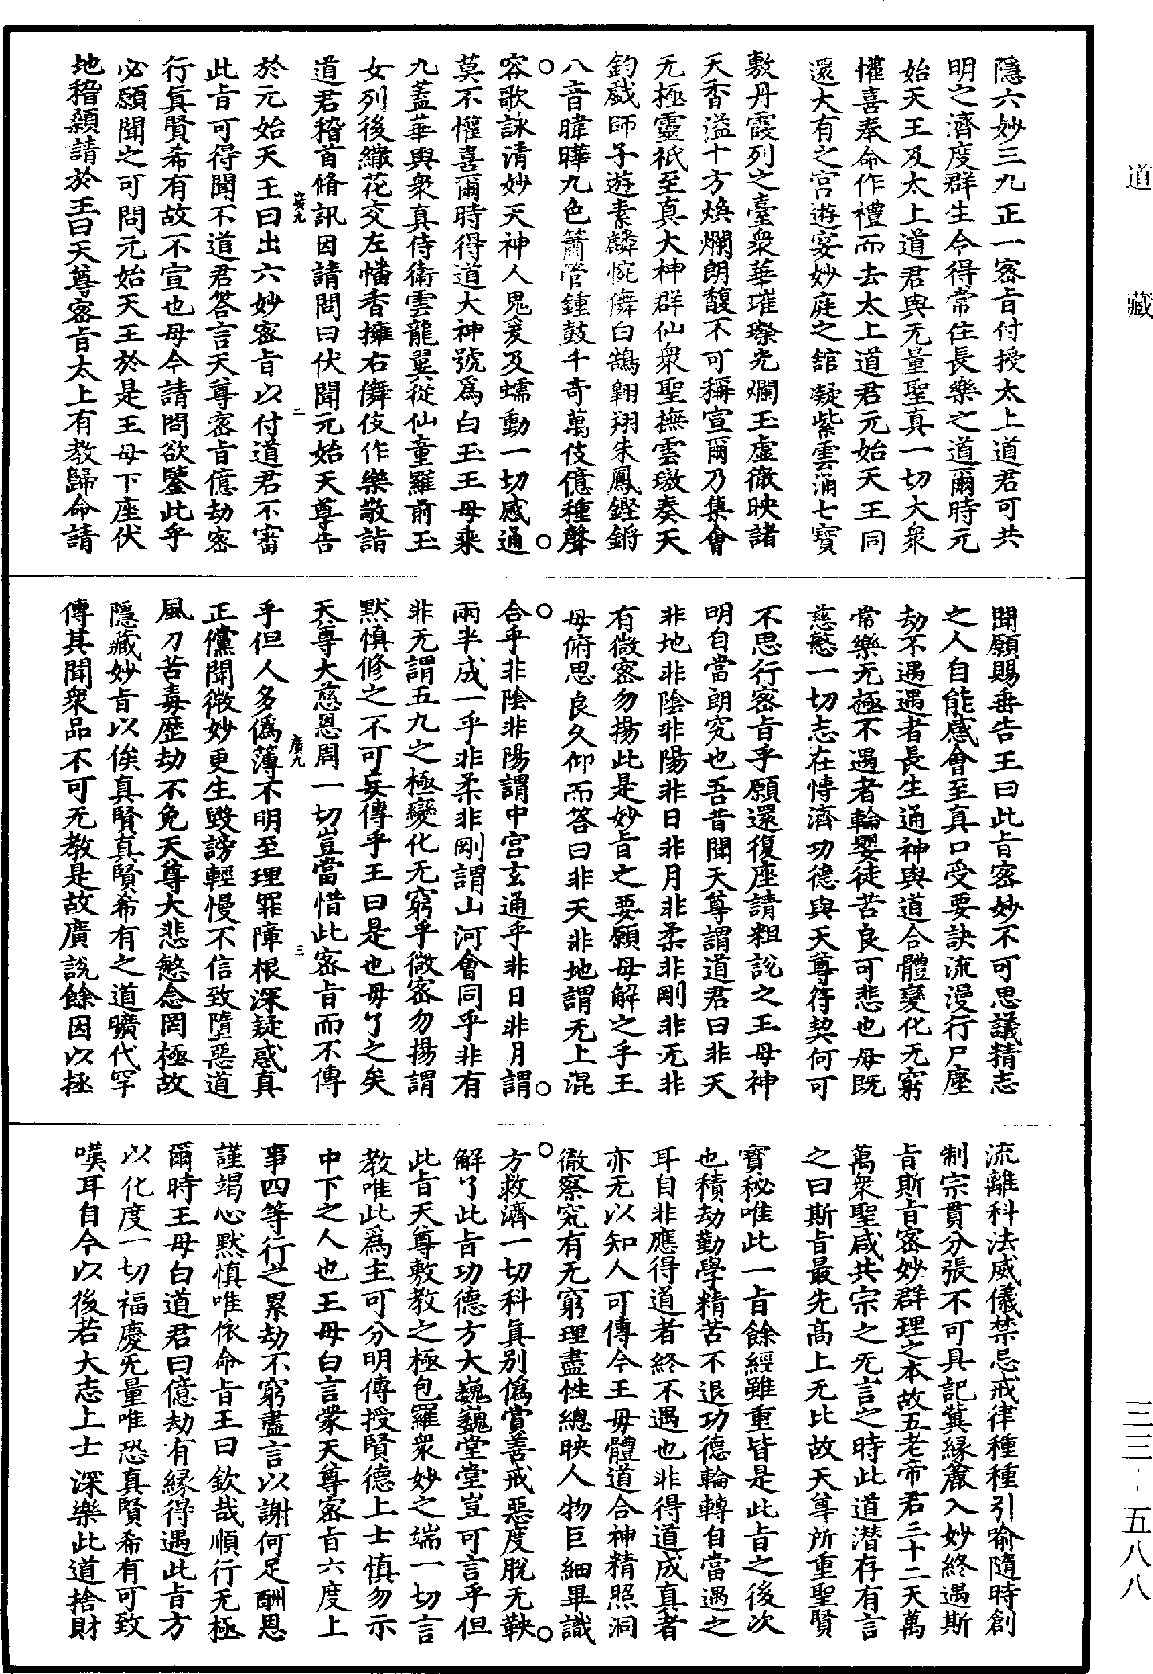 道藏
三三-五八八
隱六妙三九正一密旨付授太上道君可共
明之濟度群生令得常住長樂之道爾時元
始天王及太上道君與无量聖真一切大衆
懽喜奉命作禮而去太上道君元始天王同
還大有之宫遊宴妙庭之館凝紫雲蒲七寶
敷丹霞列之臺衆華璀璨光爛玉虚徹映諸
天香溢十方煥爛朗馥不可稱宣爾乃集會
无極靈祇至真大神群仙衆聖撫雲璈奏天
鈞戲師子遊素麟恍儛白鵠翱翔朱鳳鏗鏘
八音暐曄九色簫管鍾鼓千奇萬伎億種聲
容歌詠清妙天神人鬼爰及蠕動一切感通
莫不懽喜爾時得道大神號為白玉王母乘
九蓋華輿衆真侍衛雲龍翼從仙童羅前玉
女列後繖花交左幡香擁右儛伎作樂敬詣
道君稽首脩訊因請問曰伏聞元始天尊告
廣九 二
於元始天王曰出六妙密旨以付道君不審
此旨可得聞不道君答言天尊密旨億劫密
行真賢希有故不宣也母今請問欲鑒此乎
必願聞之可問元始天王於是王母下座伏
地稽顙請於王曰天尊密旨太上有教歸命請
聞願賜垂告王曰此旨密妙不可思議精志
之人自能感會至真口受要訣流漫行尸塵
劫不遇遇者長生通神與道合體變化无窮
常樂无極不遇者輪嬰徒苦良可悲也母既
慈愍一切志在慱濟功德與天尊符契何可
不思行密旨乎願還復座請粗說之王母神
明自當朗究也吾昔聞天尊謂道君曰非天
非地非陰非陽非日非月非柔非剛非无非
有微密勿揚此是妙旨之要願母解之乎王
母俯思良久仰而答曰非天非地謂无上混
合乎非陰非陽謂中宫玄通乎非日非月謂
兩半成一乎非柔非剛謂山河會同乎非有
非无謂五九之極變化无窮乎微密勿揚謂
默慎修之不可妄傳乎王曰是也母了之矣
天尊大慈恩周一切豈當惜此密旨而不傳
廣九 三
乎但人多偽薄不明至理罪障根深疑惑真
正儻聞微妙更生毀謗輕慢不信致墮惡道
風刀苦毒歷劫不免天尊大悲愍念罔極故
隱藏妙旨以俟真賢真賢希有之道曠代罕
傳其聞衆品不可无教是故廣說餘因以拯
流離科法威儀禁忌戒律種種引喻隨時創
制宗貫分張不可具記冀緣麄入妙終遇斯
旨斯旨密妙群理之本故五老帝君三十二天萬
萬衆聖咸共宗之无言之時此道潛存有言
之曰斯旨最先高上无比故天尊所重聖賢
寶秘唯此一旨餘經雖重皆是此旨之後次
也積劫勤學精苦不退功德輪轉自當遇之
耳自非應得道者終不遇也非得道成真者
亦无以知人可傳今王母體道合神精照洞
徹察究有无窮理盡性總映人物巨細畢識
方救濟一切科真别偽賞善戒惡度脫无鞅
解了此旨功德方大巍巍堂堂豈可言乎但
此旨天尊敷教之極包羅衆妙之端一切言
教唯此為主可分明傳授賢德上士慎勿示
中下之人也王母白言蒙天尊密旨六度上
事四等行之累劫不窮盡言以謝何足酬恩
謹竭心默慎唯依命旨王曰欽哉順行无極
爾時王母白道君曰億劫有緣得遇此旨方
以化度一切福慶无量唯恐真賢希有可致
嘆耳自今以後若大志上士深樂此道捨財